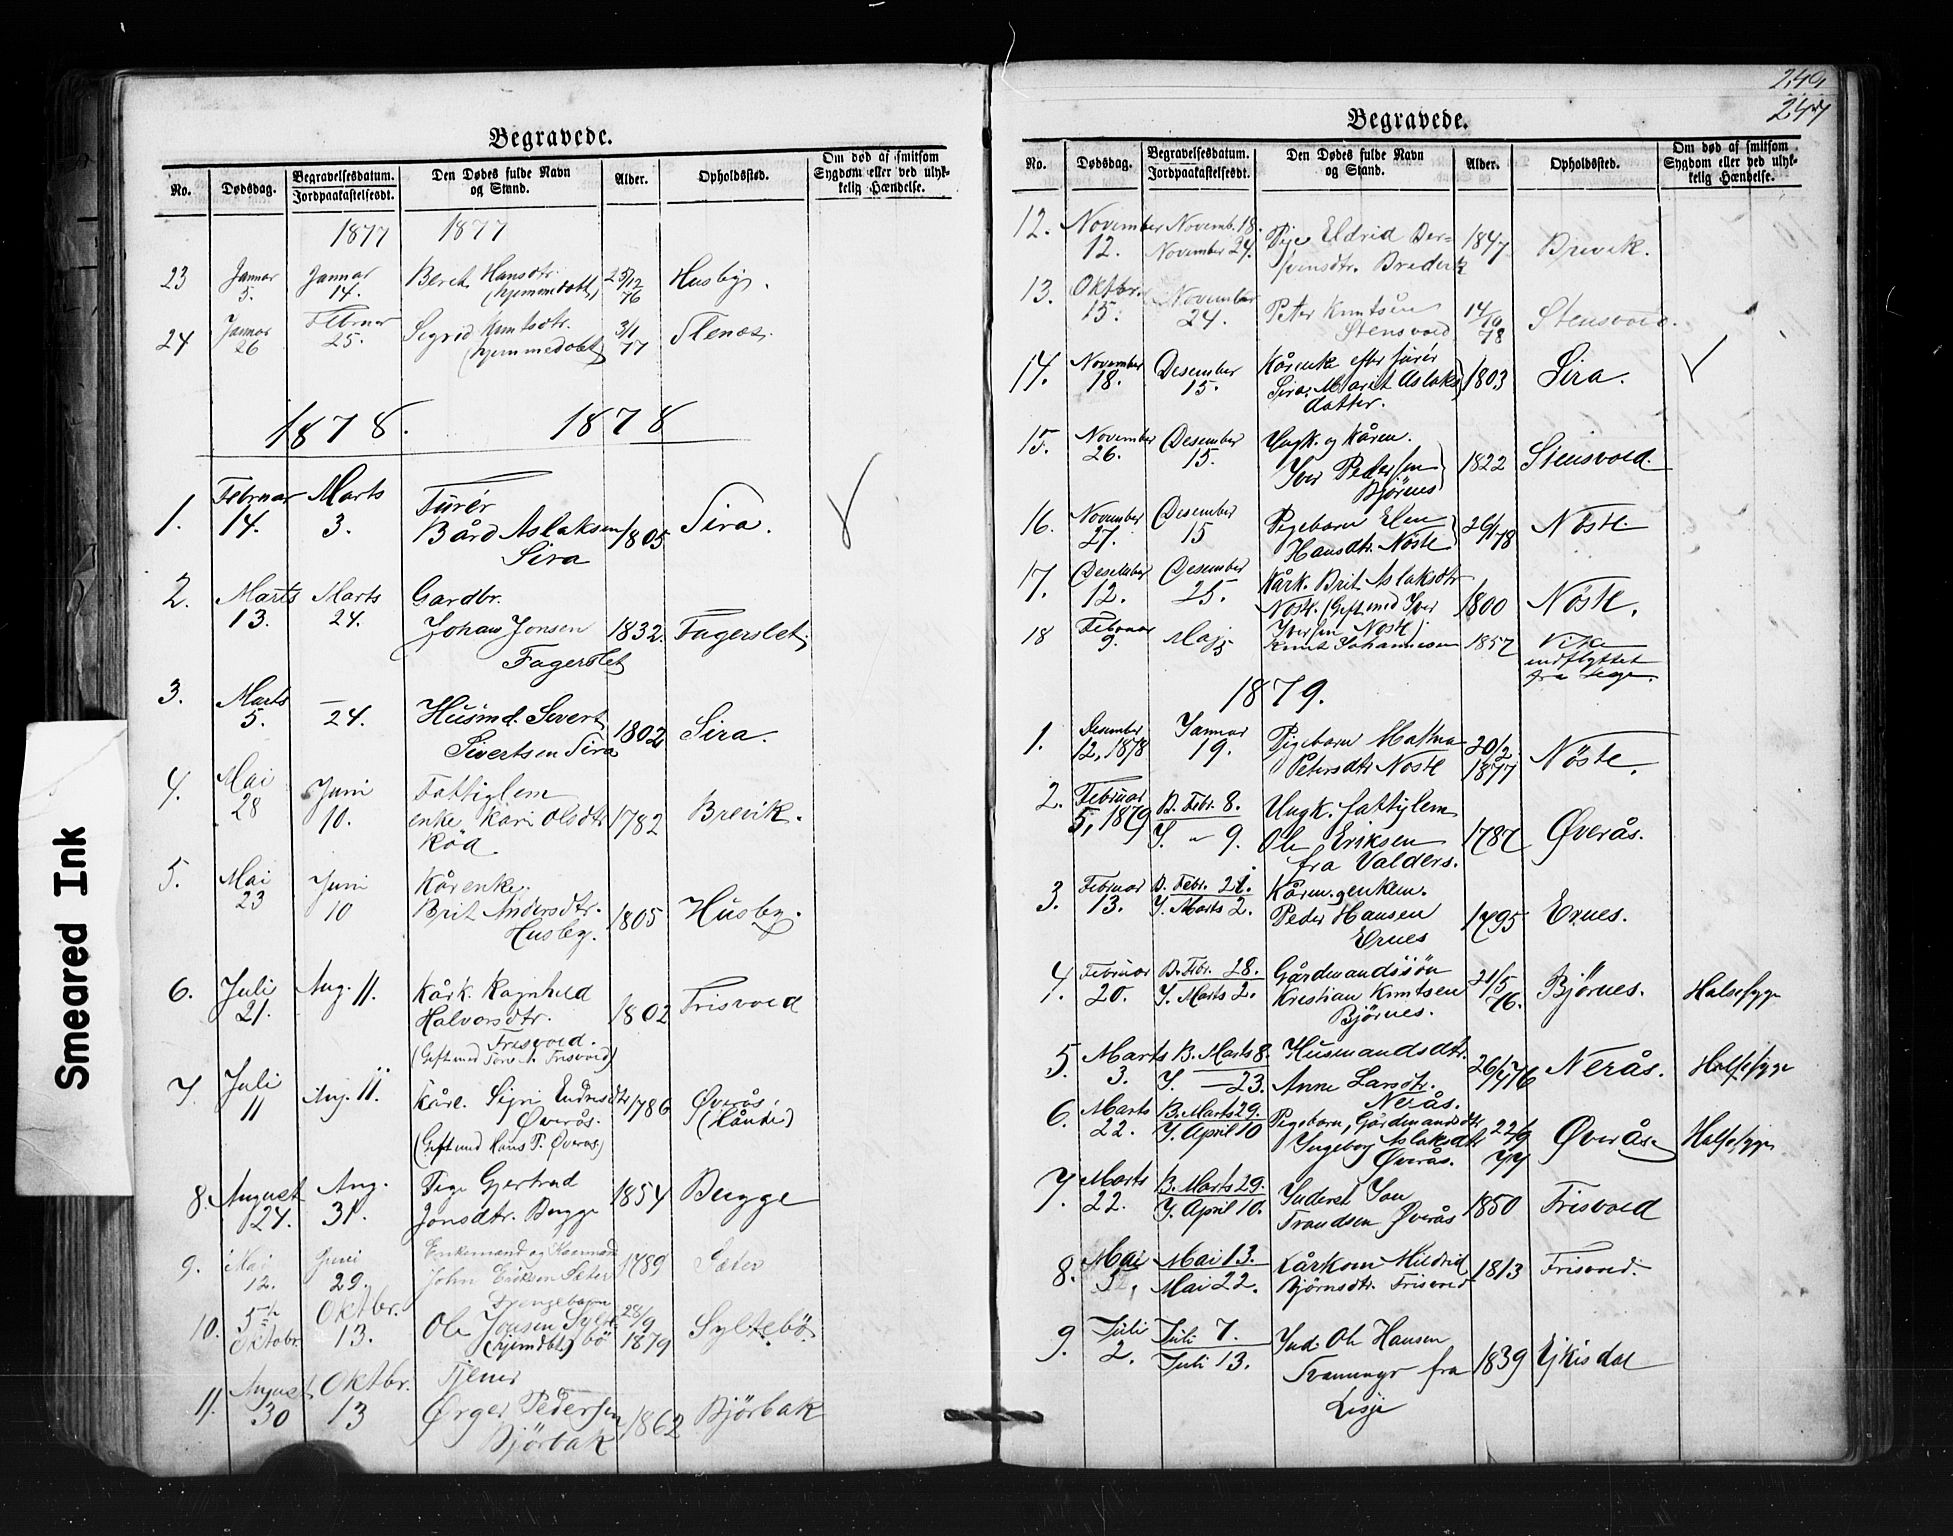 Smeared Ink
Begravede.
No. Dødsdag. Begravelsesdatum. Jordpaakastelsesdt. Den Dødes fulde Navn og Stand. Alder. Opholdssted. Om død af smitsom Sygdom eller ved ulykkelig Hændelse.
1877 1877
23 Januar 5. Januar 14. Berit Hansdtr. (hjemmedøbt) 25/12 76 Husby.
24 Januar 26 Februar 25. Sigrid Knutsdtr. (hjemmedøbt) 3/1 77 Stenæs.
1878. 1878
1. Februar 14. Marts 3. Furér Bård Aslaksen Sira 1805 Sira.
2. Marts 13. Marts 24. Gardbr. Johan Jonsen Fagerslet 1832. Fagerslet.
3. Marts 5. — 24. Husmd. Sivert Sivertsen Sira 1802 Sira.
4. Mai 28 Juni 10. Fattiglem enke Kari Olsdtr Röd 1782 Brevik.
5. Mai 23 Juni 10 Kårenke Brit Andersdtr. Husby. 1805 Husby.
6. Juli 21. Aug. 11. Kårk. Ragnhild Halvorsdtr. Frisvold. (Gift med Tore A. Frisvold) 1802 Frisvold
7. Juli 11 Aug. 11. Kårk. Sigri Endresdtr Øverås. (Gift med Hans P. Øverås) 1786 Øverås.
8. August 24. Aug. 31. Pige Gjertrud Jonsdtr. Bugge 1854 Bugge
9. Mai 12. Juni 29. Enkemand og Kaarmand John Eriksen Sæter 1789 Sæter
10. 5te Oktobr. Oktbr. 13. Drengebarn Ole Jonsen Syltebö (hjemdbt.) 28/9 1879 Syltebö
11. August 30 Oktbr. 13 Tjener Ørger Pedersen Bjørbak 1862 Bjørbak
249
247
Begravede.
No. Dødsdag. Begravelsesdatum. Jordpaakastelsesdt. Den Dødes fulde Navn og Stand. Alder. Opholdssted. Om død af smitsom Sygdom eller ved ulykkelig Hændelse.
12. November 12. Novemb. 18. November 24. Pige Eldrid 1847
13. Oktbr. 15. November 24. Peter Knutsen Stensvold 14/10 78 Stensvold.
14. November 18. Desember 15. Kårenke efter furér Sira, Marit Aslaksdatter. 1803 Sira.
15. November 26. Desember 15. Ungk. og Kårm. Iver Pedersen Bjørnes 1822 Stensvold.
16. November 27. Desember 15 Pigebarn Elen Hansdtr. Nöste 26/1 78 Nöste.
17. Desember 12. Desember 25. Kårk. Brit Aslaksdtr Nöste. (Gift med Iver Iversen Nöste) 1800 Nöste.
18 Februar 9. Maj 5 Knut Johannesen 1857 Vike indflyttet fra
1879.
1. Desember 12, 1878 Januar 19. Pigebarn Petersdtr Nöste 20/2 1877 Nöste.
2. Februar 5, 1879 B. Febr. 8. J. " 9. Ungk. fattiglem Ole Eriksen fra Valders. 1787 Øverås.
3. Februar 13. B. Febr. 21. J. Marts 2. Kårm. og enkem. Peder Hansen Ernes 1795 Ernes.
4. Februar 20. B. Febr. 28. J. Marts 2. Gårdmandssön Kristian Knutsen Bjørnes. 21/5 76. Bjørnes. Halsesyge
5. Marts 3. B. Marts 8. J. — 23. Husmandsdtr. Anne Larsdtr. Nerås. 26/4 76 Nerås. Halsesyge
6. Marts 22. B. Marts 29. J. April 10 Pigebarn, Gårdmandsdtr Ingeborg Aslaksdtr Øverås. 22/9 77 Øverås. Halsesyge
7. Marts 22. B. Marts 29. J. April 10. Inderst Jon Trondsen Øverås 1850 Frisvold
8. Mai Mai 13. Mai 22. Kårkone Mildrid Björnsdtr. Frisvold 1813 Frisvold.
9. Juli 2. Juli 7. Juli 13. Ind. Ole Hansen fra Lesje 1839 Ejkisdal